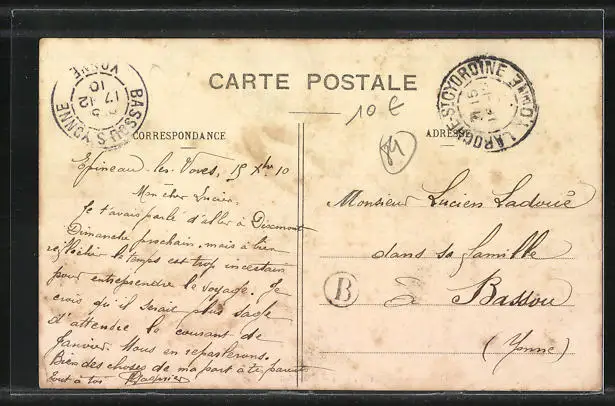 CARTE POSTALE
10 €
89
CORRESPONDANCE
ADRESSE
BASSOU YONNE
17-12
10
LAROCHE-ST-CYDROINE YONNE
15
Epineau-les-Voves, 15 Xbre 10
Mon cher Lucien,
Je t'avais parlé d'aller à Dixmont
Dimanche prochain, mais à bien
réfléchir le temps est trop incertain
pour entreprendre le voyage. Je
crois qu'il serait plus sage
d'attendre le courant de
Janvier. Nous en reparlerons.
Bien des choses de ma part à tes parents
Tout à toi
Monsieur Lucien Ladouë
dans sa famille
B
à Bassou
(Yonne)